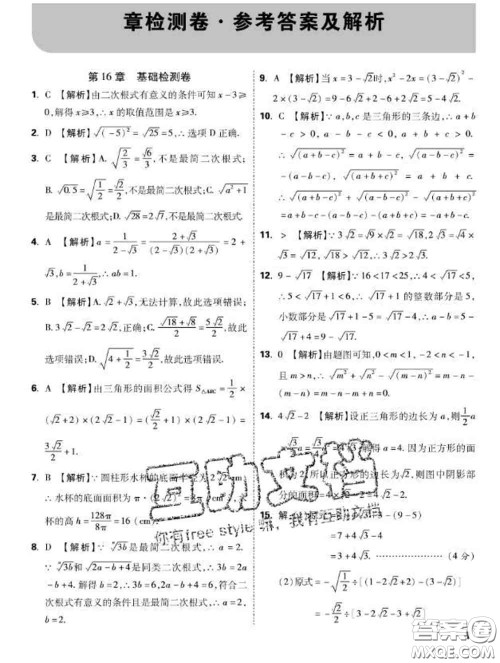 章检测卷·参考答案及解析
第16章 基础检测卷
1. C 【解析】由二次根式有意义的条件可知 x－3≥
0,解得 x≥3,∴ x 的取值范围是 x≥3.
2. D 【解析】√(－5)² = √25 = 5,∴ 选项 D 正确.
3. C 【解析】A. √(2/3) = √6/3,不是最简二次根式;
B. √0.5 = √(1/2) = √2/2,不是最简二次根式;C. √(a²+1)
是最简二次根式;D. √28 = 2√7,不是最简二次根式.
4. A 【解析】a = 1/(2－√3) = (2+√3)/((2－√3)(2+√3)) = 2+
√3,b = 1/(2+√3),∴ ab = 1.
5. B 【解析】A. √2+√3,无法计算,故此选项错误;
B. 3√2－√2 = 2√2,故此选项正确;C. (√18+√8)/2 = 5√2/2,故此
选项错误;D. √(4+1/2) = 3√2/2,故此选项错误.
6. A 【解析】由三角形的面积公式得 S△ABC = 1/2×
(√2+2)×(2√2－1) = (√2/2+1)×(2√2－1) =
3√2/2+1.
7. B 【解析】∵ 圆柱形水杯的底面
∴ 水杯的底面面积为
杯的高 h = 128π/8π = 16 (cm)
8. D 【解析】∵ 是最简二次根式,∴ a = 2.
∵ √3b 和 √(2a－b+4) 是同类二次根式,∴ 3b = 2a
－b+4. 解得 a = 2,∴ 3b = 6,2a－b+4 = 6,符合二
次根式有意义的条件且是最简二次根式,∴ a = 2,
b = 2.
9. A 【解析】当 x = 3－√2 时,x²－2x = (3－√2)²－
2×(3－√2) = 9－6√2+2－6+2√2 = 5－4√2.
10. C 【解析】∵ a,b,c 是三角形的三条边,∴ a+b
－c > 0, a－b－c < 0, b－c－a < 0, a+b+c > 0.
∴ √(a+b－c)² = a+b－c, √(a－b－c)² =
－(a－b－c), √(b－c－a)² = －(b－c－a),
√(a+b+c)² = a+b+c. ∴ C 选项正确.
11. > 【解析】∵ 3√2 = √9×√2 = √18,2√3 = √4×
√3 = √12, √18 > √12,∴ 3√2 > 2√3.
12. 9－√17 【解析】∵ 16<17<25,∴ 4<√17<5,
∴ 5<√17+1<6,∴ √17+1 的整数部分是 5,
小数部分是 √17+1－5 = √17－4,∴ a－b = 5－
√17+4 = 9－√17.
13. 0 【解析】由题图可知,0<m<1,－2<n<－1,
且 m>n,∴ √m²+√n²－√(m－n)² = m－n－
(m－n) = m－n－m+n = 0.
14. 4√2－2 【解析】设正三角形的边长为 a,则 1/2 a
解得 a = 4. 因为正方形的面
积为 2,所以正方形的边长为 √2,则图中阴影部
分的面积 = 4√2－2.
15. 解:
= 7+3√3+√3
= 7+4√3. (4分)
(2)原式 = －√(1/2)÷[(1－2√2)－(3－2√2)]
= －√2/2÷[1－2√2－3+2√2]
互助文档
你有free style嘛,我有互助文档
答案圈
MXQE.COM